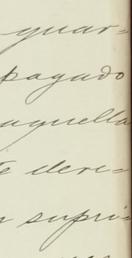 guar-
pagado
aquella
te deri-
n supri-